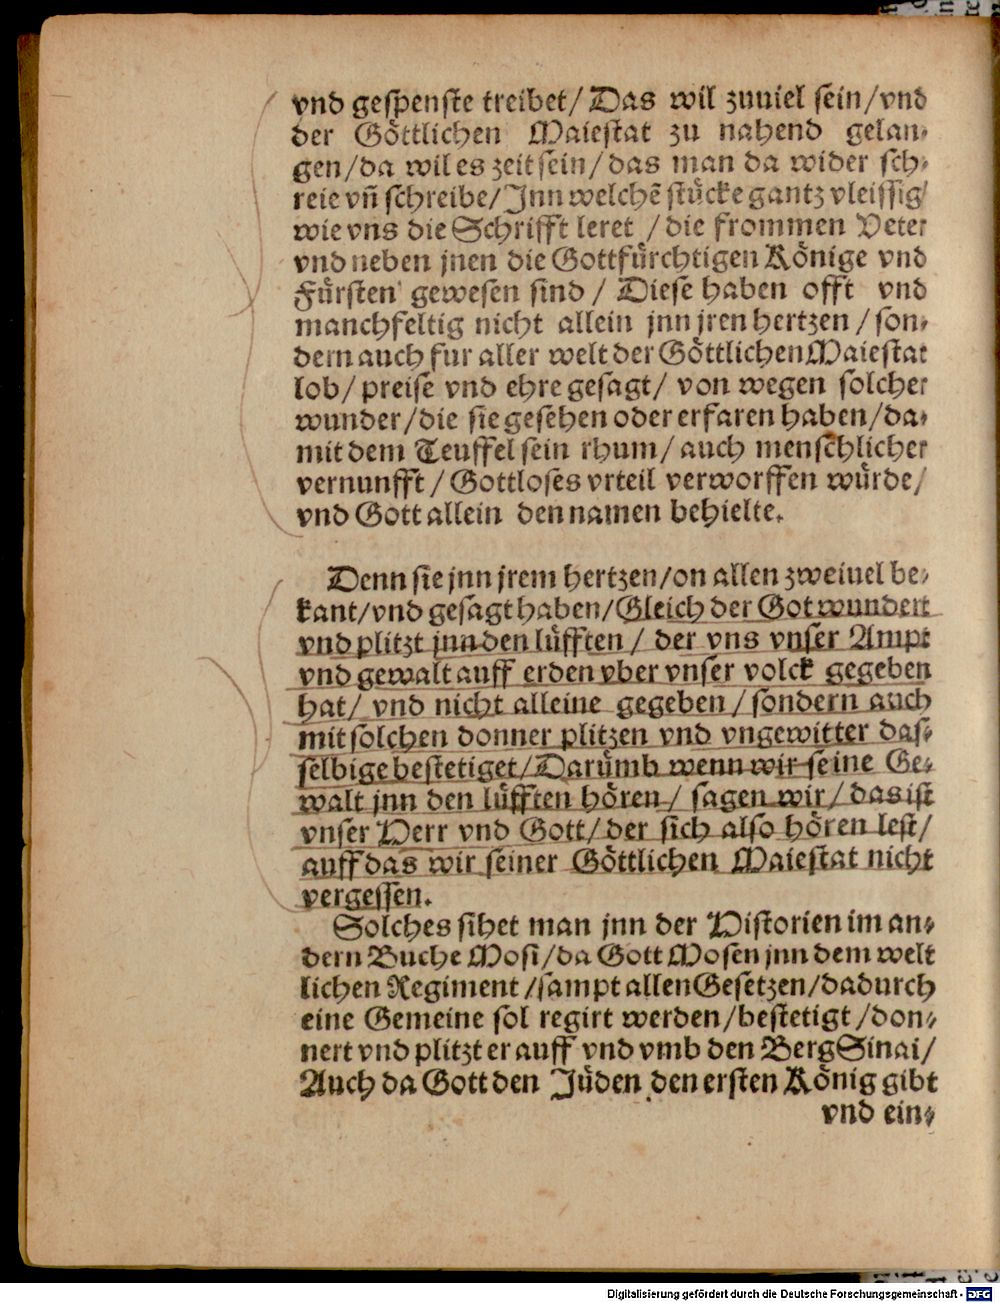 vnd gespenste treibet/ Das wil zuuiel sein/vnd
der Göttlichen Maiestat zu nahend gelan-
gen/da wil es zeit sein/das man da wider sch-
reie vñ schreibe/Jnn welchẽ stücke gantz vleissig/
wie vns die Schrifft leret /die frommen Veter
vnd neben jnen die Gottfürchtigen Könige vnd
Fürsten gewesen sind / Diese haben offt vnd
manchfeltig nicht allein jnn jren hertzen /son-
dern auch fur aller welt der Göttlichen Maiestat
lob/ preise vnd ehre gesagt/ von wegen solcher
wunder/die sie gesehen oder erfaren haben/da-
mit dem Teuffel sein rhum/ auch menschlicher
vernunfft/ Gottloses vrteil verworffen würde/
vnd Gott allein den namen behielte.
Denn sie jnn jrem hertzen/on allen zweiuel be-
kant/vnd gesagt haben/Gleich der Got wundert
vnd plitzt jnn den lüfften / der vns vnser Ampt
vnd gewalt auff erden vber vnser volck gegeben
hat/ vnd nicht alleine gegeben /sondern auch
mit solchen donner plitzen vnd vngewitter das-
selbige bestetiget/Darümb wenn wir seine Ge-
walt jnn den lüfften hören/ sagen wir/das ist
vnser Herr vnd Gott/der sich also hören lest/
auff das wir seiner Göttlichen Maiestat nicht
vergessen.
Solches sihet man jnn der Historien im an-
dern Buche Mosi/da Gott Mosen jnn dem welt
lichen Regiment /sampt allen Gesetzen/dadurch
eine Gemeine sol regirt werden/bestetigt /don-
nert vnd plitzt er auff vnd vmb den Berg Sinai/
Auch da Gott den Jüden den ersten König gibt
vnd ein-
Digitalisierung gefördert durch die Deutsche Forschungsgemeinschaft - DFG